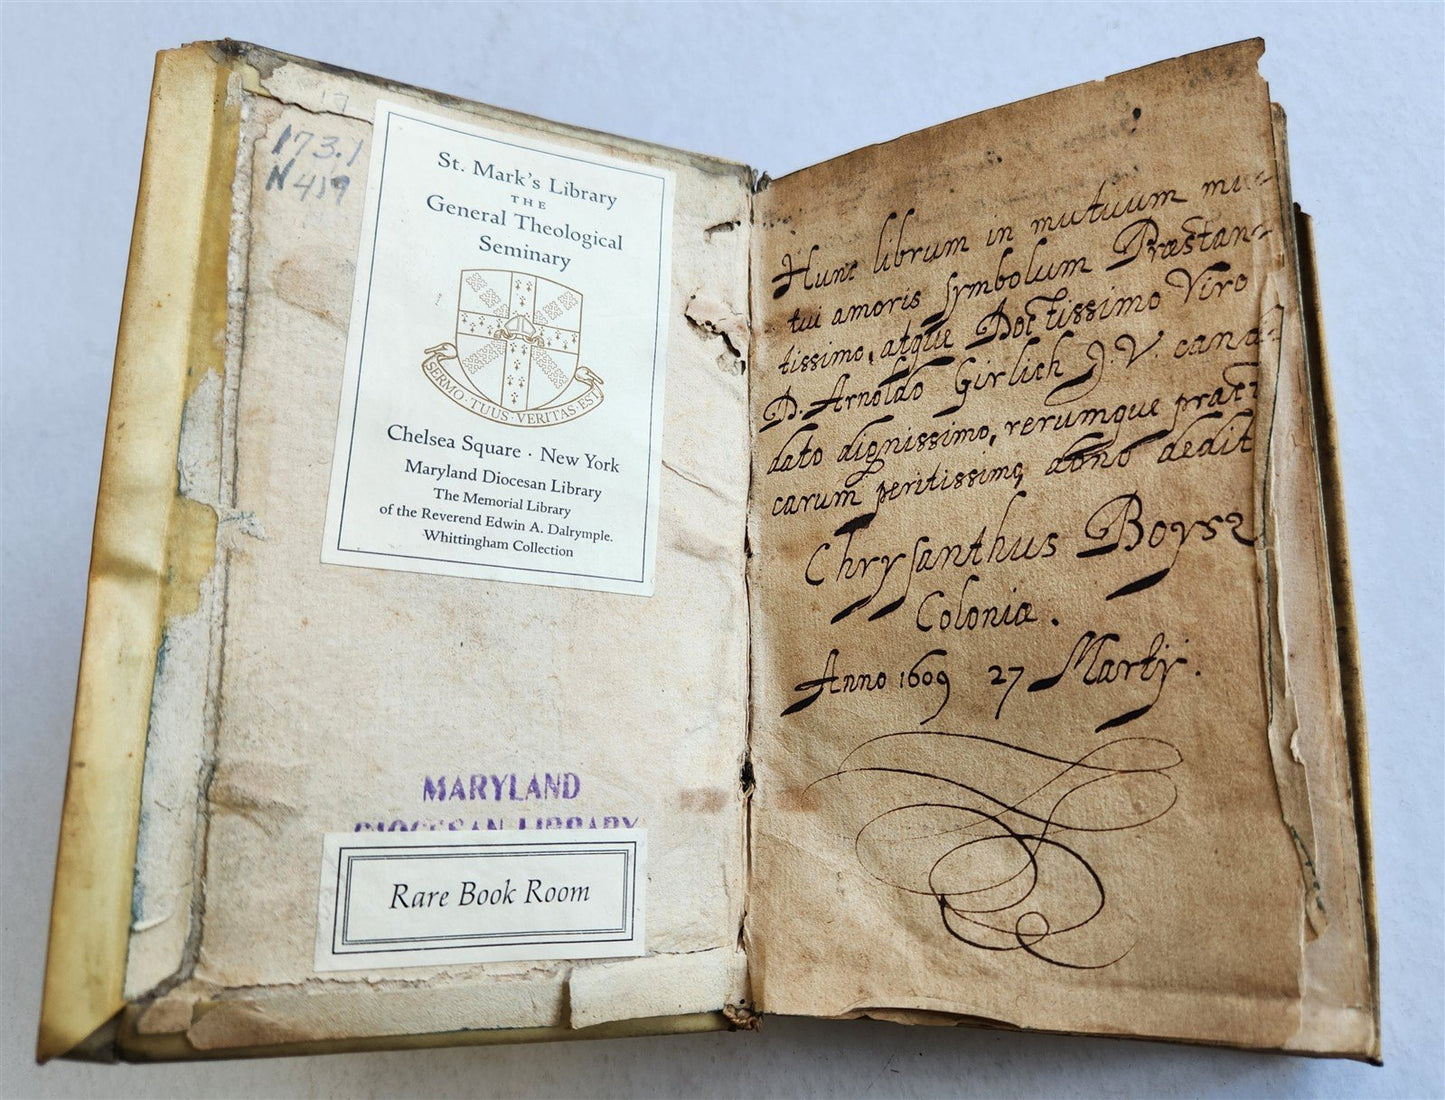 173.1
N 419
St. Mark's Library
THE
General Theological
Seminary
SERMO · TUUS · VERITAS · EST
Chelsea Square · New York
Maryland Diocesan Library
The Memorial Library
of the Reverend Edwin A. Dalrymple.
Whittingham Collection
MARYLAND
DIOCESAN LIBRARY
Rare Book Room
Hunc librum in mutuum mu-
tui amoris symbolum Præstan-
tissimo, atque Doctissimo Viro
D. Arnoldo Girlich J. V. candi-
dato dignissimo, rerumque pract
carum peritissimo, dono dedit
Chrysanthus Boysz
Coloniæ.
Anno 1609 27 Martij.